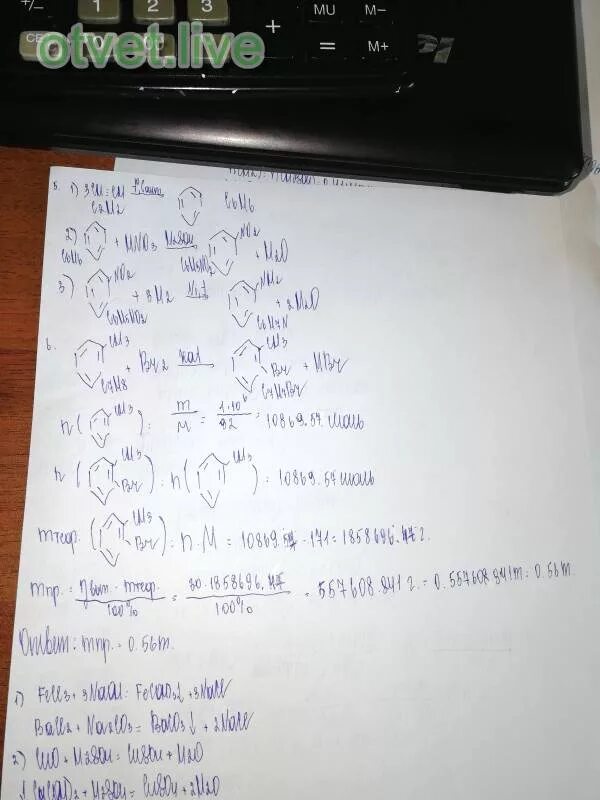 +/- 1 2 3 + MU M-
CE 0 00 = M+
otvet.live
5. 1) 3CH≡CH
C2H2 C6H6
2) + HNO3 H2SO4 NO2 + H2O
C6H6 C6H5NO2
3) NO2 + 3H2 Ni,t NH2 + 2H2O
C6H5NO2 C6H7N
6. CH3 + Br2 kat CH3 Br + HBr
C7H8 C7H7Br
n( CH3 ) = m/M = 1·10^6/92 = 10869.57 моль
n( CH3 Br ) = n( CH3 ) = 10869.57 моль
mтеор. ( CH3 Br ) = n·M = 10869.57 · 171 = 1858696.47 г.
mпр. = ηвых · mтеор./100% = 30·1858696.47/100% = 557608.941 г. = 0.557608941 т = 0.56 т.
Ответ: mпр. = 0.56 т.
1) FeCl3 + 3NaOH = Fe(OH)3↓ + 3NaCl
BaCl2 + Na2CO3 = BaCO3↓ + 2NaCl
2) CuO + H2SO4 = CuSO4 + H2O
Cu(OH)2 + H2SO4 = CuSO4 + 2H2O